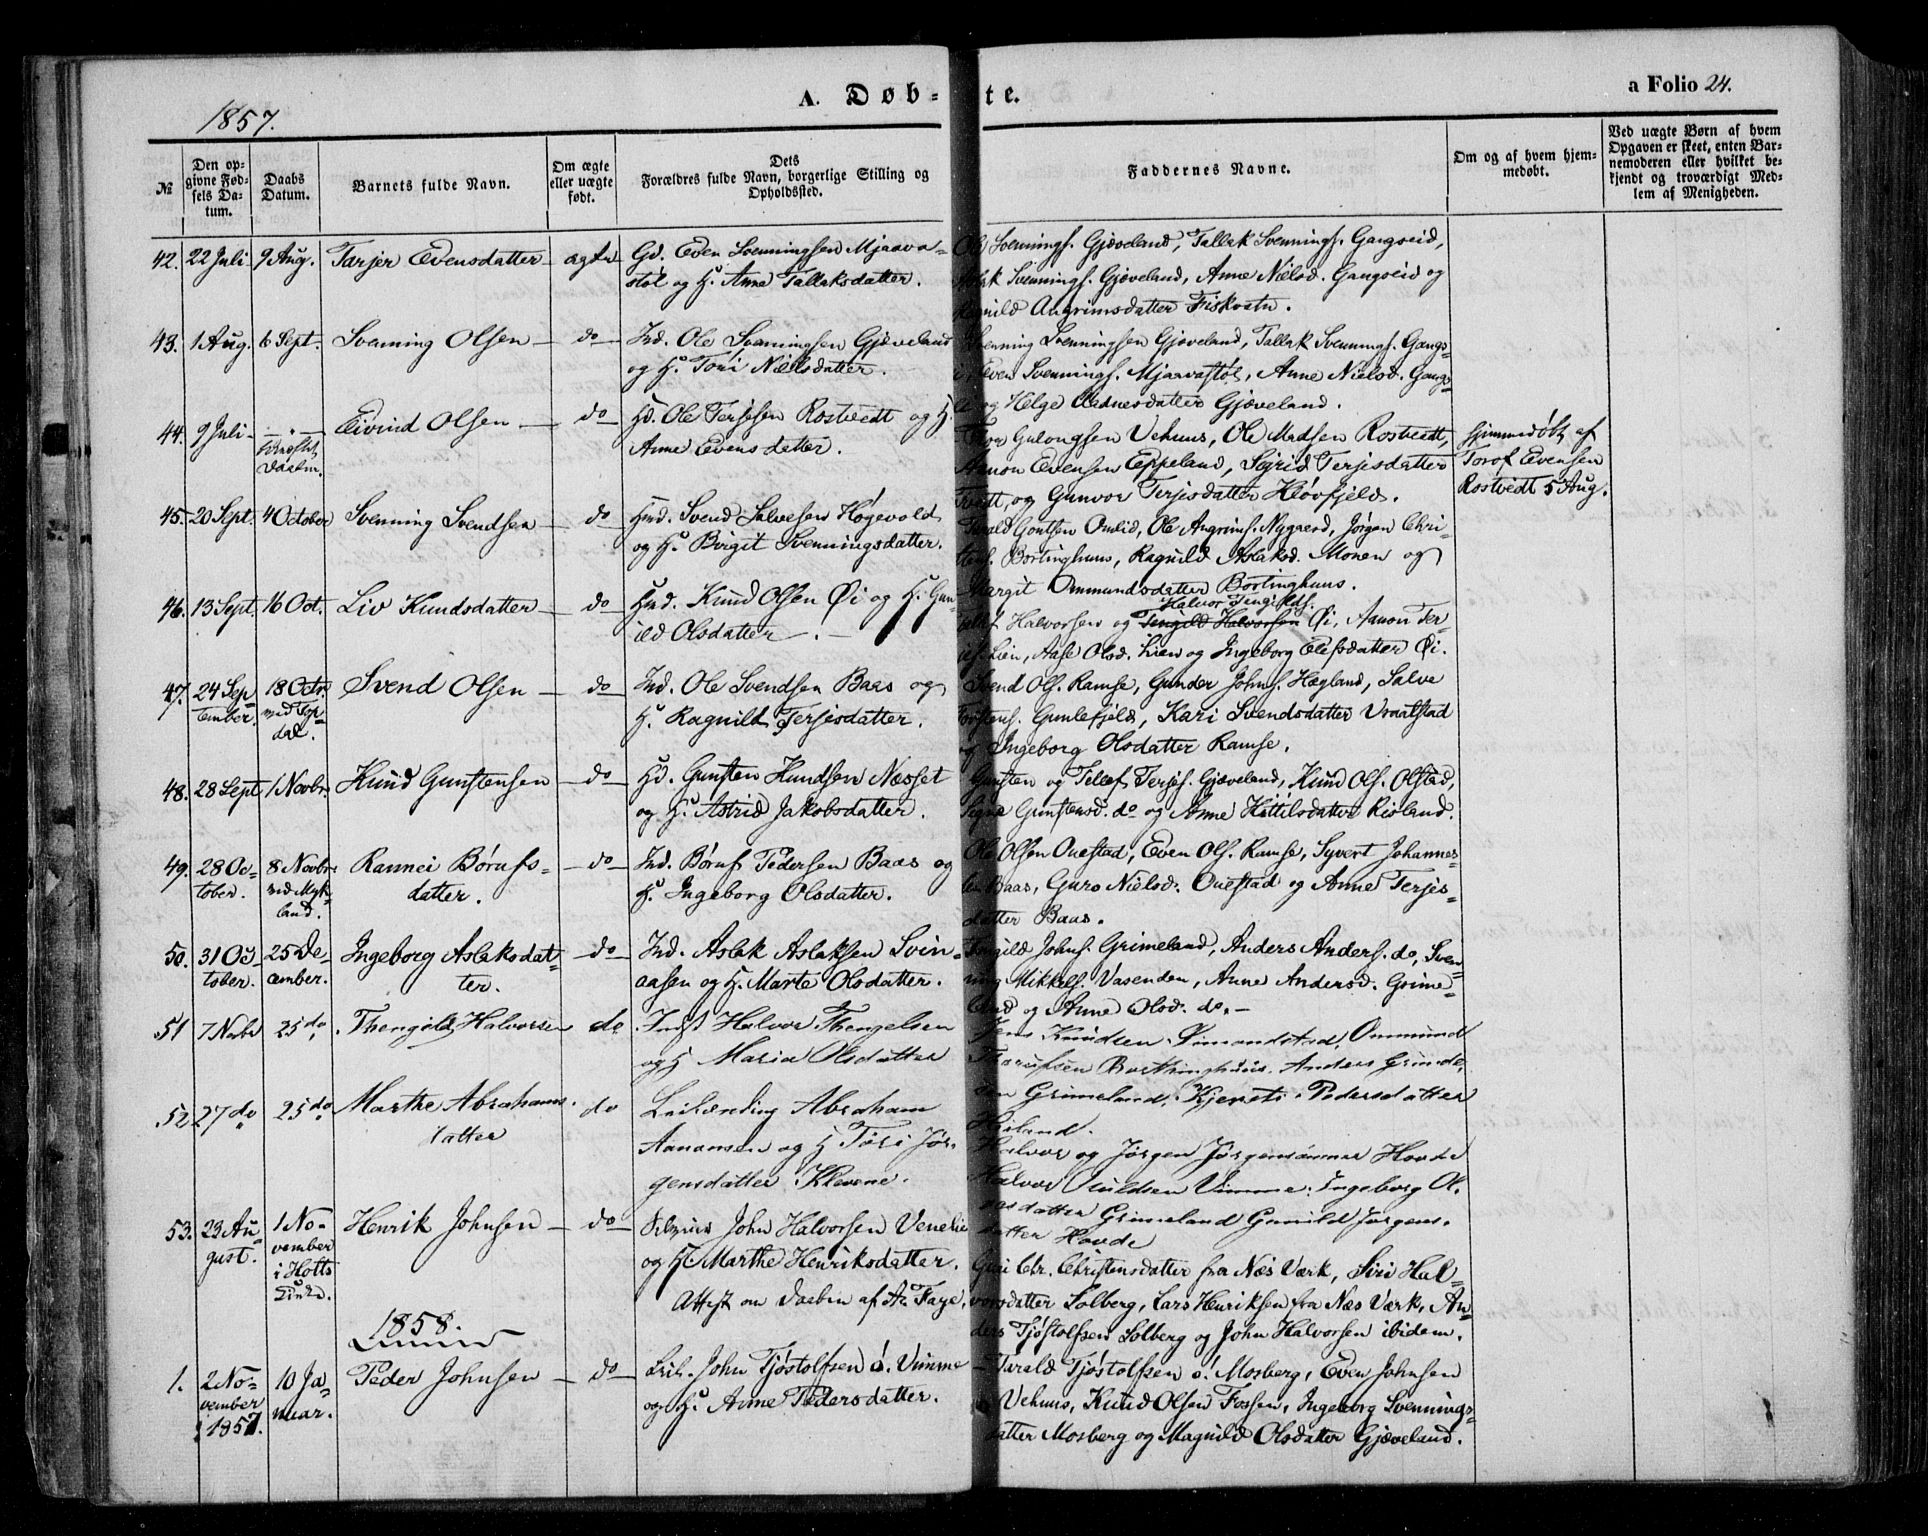 1857.
A. Døb-te.
a Folio 24.
№
Den opgivne Fødsels Datum.
Daabs Datum.
Barnets fulde Navn.
Om ægte eller uægte født.
Dets Forældres fulde Navn, borgerlige Stilling og Opholdssted.
Faddernes Navne.
Om og af hvem hjemmedøbt.
Ved uægte Børn af hvem Opgaven er skeet, enten Barnemoderen eller hvilket bekjendt og troværdigt Medlem af Menigheden.
42. 22 Juli 9 Aug. Tarjer Evensdatter – ægte
Gd. Even Svenningsen Mjaava-
støl og H. Anne Tallaksdatter.
Ole Svennings. Gjøveland, Tallak Svennings. Gangseid,
Aslak Svennings. Gjøveland, Anne Nielsd. Gangseid og
Angrimsdatter Fiskvatn.
43. 1 Aug. 6 Sept. Svenning Olsen – do –
Ind. Ole Svenningsen Gjøveland
og H. Tori Nielsdatter.
Svenning Svenningsen Gjøveland, Tallak Svennings. Gangs-
Even Svennings. Mjaavastøl, Anne Nielsd. Gangs-
og Helge Aadnesdatter Gjøveland.
44. 9 Juli – Eivind Olsen – do –
Hd. Ole Terjesen Rostvedt og H.
Anne Evensdatter.
Gulongsen Vehuus, Ole Madsen Rostvedt,
Aanon Evensen Eppeland, Sigrid Terjesdatter
Tvedt, og Gunvor Terjesdatter Kløvfjeld.
Hjemmedøbt af
Torof Evensen
Rostvedt 5 Aug.
45. 20 Sept. 4 October Svenning Svendsen – do
Hmd. Svend Salvesen Høgevold
og H. Birgit Svenningsdatter.
Omlid, Ole Angrims. Nygaard, Jørgen Chri-
stens. Bortinghuus, Ragnild Aslaksd. Monen og
Margit Ommundsdatter Bortinghuus.
46. 13 Sept. 16 Oct. Liv Knudsdatter – do
Hmd. Knud Olsen Øi og H. Gun-
ild Olsdatter – . –
Halvor Tengildss.
Halvorsen og Tengild Halvorsen Øi, Aanon Ter-
jes. Lien, Aase Olsd. Lien og Ingeborg Elefsdatter Øi.
47. 24 Sep-
tember. 18 Octr.
ved Top-
dal. Svend Olsen – do –
Ind. Ole Svendsen Baas og
H. Ragnild Terjesdatter.
Svend Ols. Ramse, Gunder Johns. Hægland, Salve
Torstens. Gunlefjeld, Kari Svendsdatter Vraalstad
og Ingeborg Olsdatter Ramse.
48. 28 Sept 1 Novbr. Knud Gunstensen – do –
Hd. Gunsten Knudsen Næsset
og H. Astrid Jakobsdatter.
Gunsten og Tellef Terjes. Gjøveland, Knud Ols. Olstad,
Signe Gunstensd. do og Anne Kittilsdatter Risland.
49. 28 Oc-
tober. 8 Novbr.
ved Myk-
land. Rannei Børufs-
datter. – do –
Ind. Børuf Pedersen Baas og
H. Ingeborg Olsdatter.
Ole Olsen Ouestad, Even Ols. Ramse, Syvert Johannes-
sen Baas, Guro Nielsd. Ouestad og Anne Terjes-
datter Baas.
50. 31 Oc-
tober. 25 De-
cember. Ingeborg Aslaksdat-
ter. – do –
Ind. Aslak Aslaksen Svin-
aasen og H. Marte Olsdatter.
Tengild Johns. Grimeland, Anders Anders. do, Sven-
ning Mikkels. Vasenden, Anne Andersd. Grime-
land og Anne Olsd. do. –
51 7 Novbr 25 do. Thengild Halvorsen do
Indst Halvor Thengelsen
og H Maria Olsdatter
Jens Knudsen Simonstad, Ommund
Thorufsen Bortinghuus. Anders Grimde
Grimeland, Kjersti Pedersdatter
52 27 do 25 do Marthe Abrahams-
datter do
Leilænding Abraham
Aanonsen og H Tori Jør-
gensdatter Klevene.
Halvor og Jørgen Jørgensønner Hovde
Halvor Vimme. Ingeborg O-
datter Grimeland Gunild Jørgens-
datter Hovde
53. 23 Au-
gust. 1 No-
vember
i Holts
Kirke. Henrik Johnsen – do –
John Halvorsen
og H. Marthe Henriksdatter.
Attest om Daaben af Faye.
Chr. Christensdatter fra Næs Værk, Siri Hal-
vorsdatter Solberg, Lars Henriksen fra Næs Værk, An-
ders Tjøstolfsen Solberg og John Halvorsen ibidem.
1858.
1. 2 No-
vember
1857. 10 Ja-
nuar. Peder Johnsen – do –
Leil. John Tjøstolfsen ø. Vimme
og H. Anne Pedersdatter.
– Tarald Tjøstolfsen ø. Mosberg, Even Johnsen
Vehuus, Knud Olsen Fossen, Ingeborg Svennings-
datter Mosberg og Magnild Olsdatter Gjøveland.